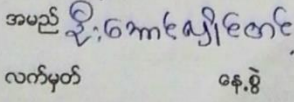 အမည် ဦးအောင်မျိုးတင်
လက်မှတ် နေ့စွဲ